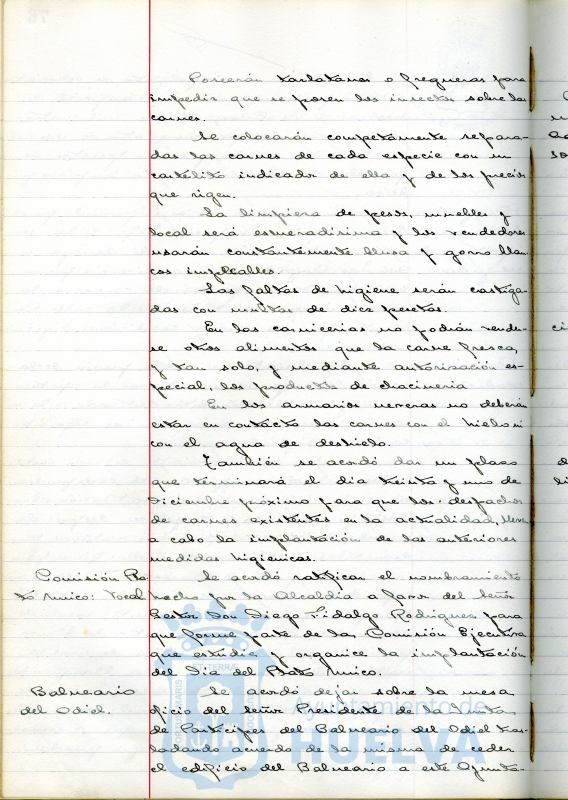 Poseerán tarlatanas o fresqueras para
impedir que se posen los insectos sobre las
carnes.
Se colocarán competamente separa-
das las carnes de cada especie con un
cartelito indicador de ella y de los precios
que rigen.
La limpieza de pesos, muebles y
local será esmeradísima y los vendedores
usarán constantemente blusa y gorro blan-
cos impecables.
Las faltas de higiene serán castiga-
das con multas de diez pesetas.
En las carnicerias no podrán vender-
se otros alimentos que la carne fresca,
y tan solo, y mediante autorización es-
pecial, los productos de chacineria
En los armarios neveras no deberán
estar en contacto las carnes con el hielo ni
con el agua de deshielo.
También se acordó dar un plazo
que terminará el dia treinta y uno de
Diciembre próximo para que los despachos
de carnes existentes en la actualidad, lleven
a cabo la implantación de las anteriores
medidas higienicas.
Comisión Pla-
to único: Vocal
Se acordó ratificar el nombramiento
hecho por la Alcaldia a favor del Señor
Gestor Don Diego Fidalgo Rodriguez para
que forme parte de la Comisión Ejecutiva
que estudie y organice la implantación
del Dia del Plato Unico.
Balneario
del Odiel.
Se acordó dejar sobre la mesa
oficio del Señor Presidente de la Junta
de Participes del Balneario del Odiel tras-
ladando acuerdo de la misma de ceder
el edificio del Balneario a este Ayunta-
Ayuntamiento de
HUELVA